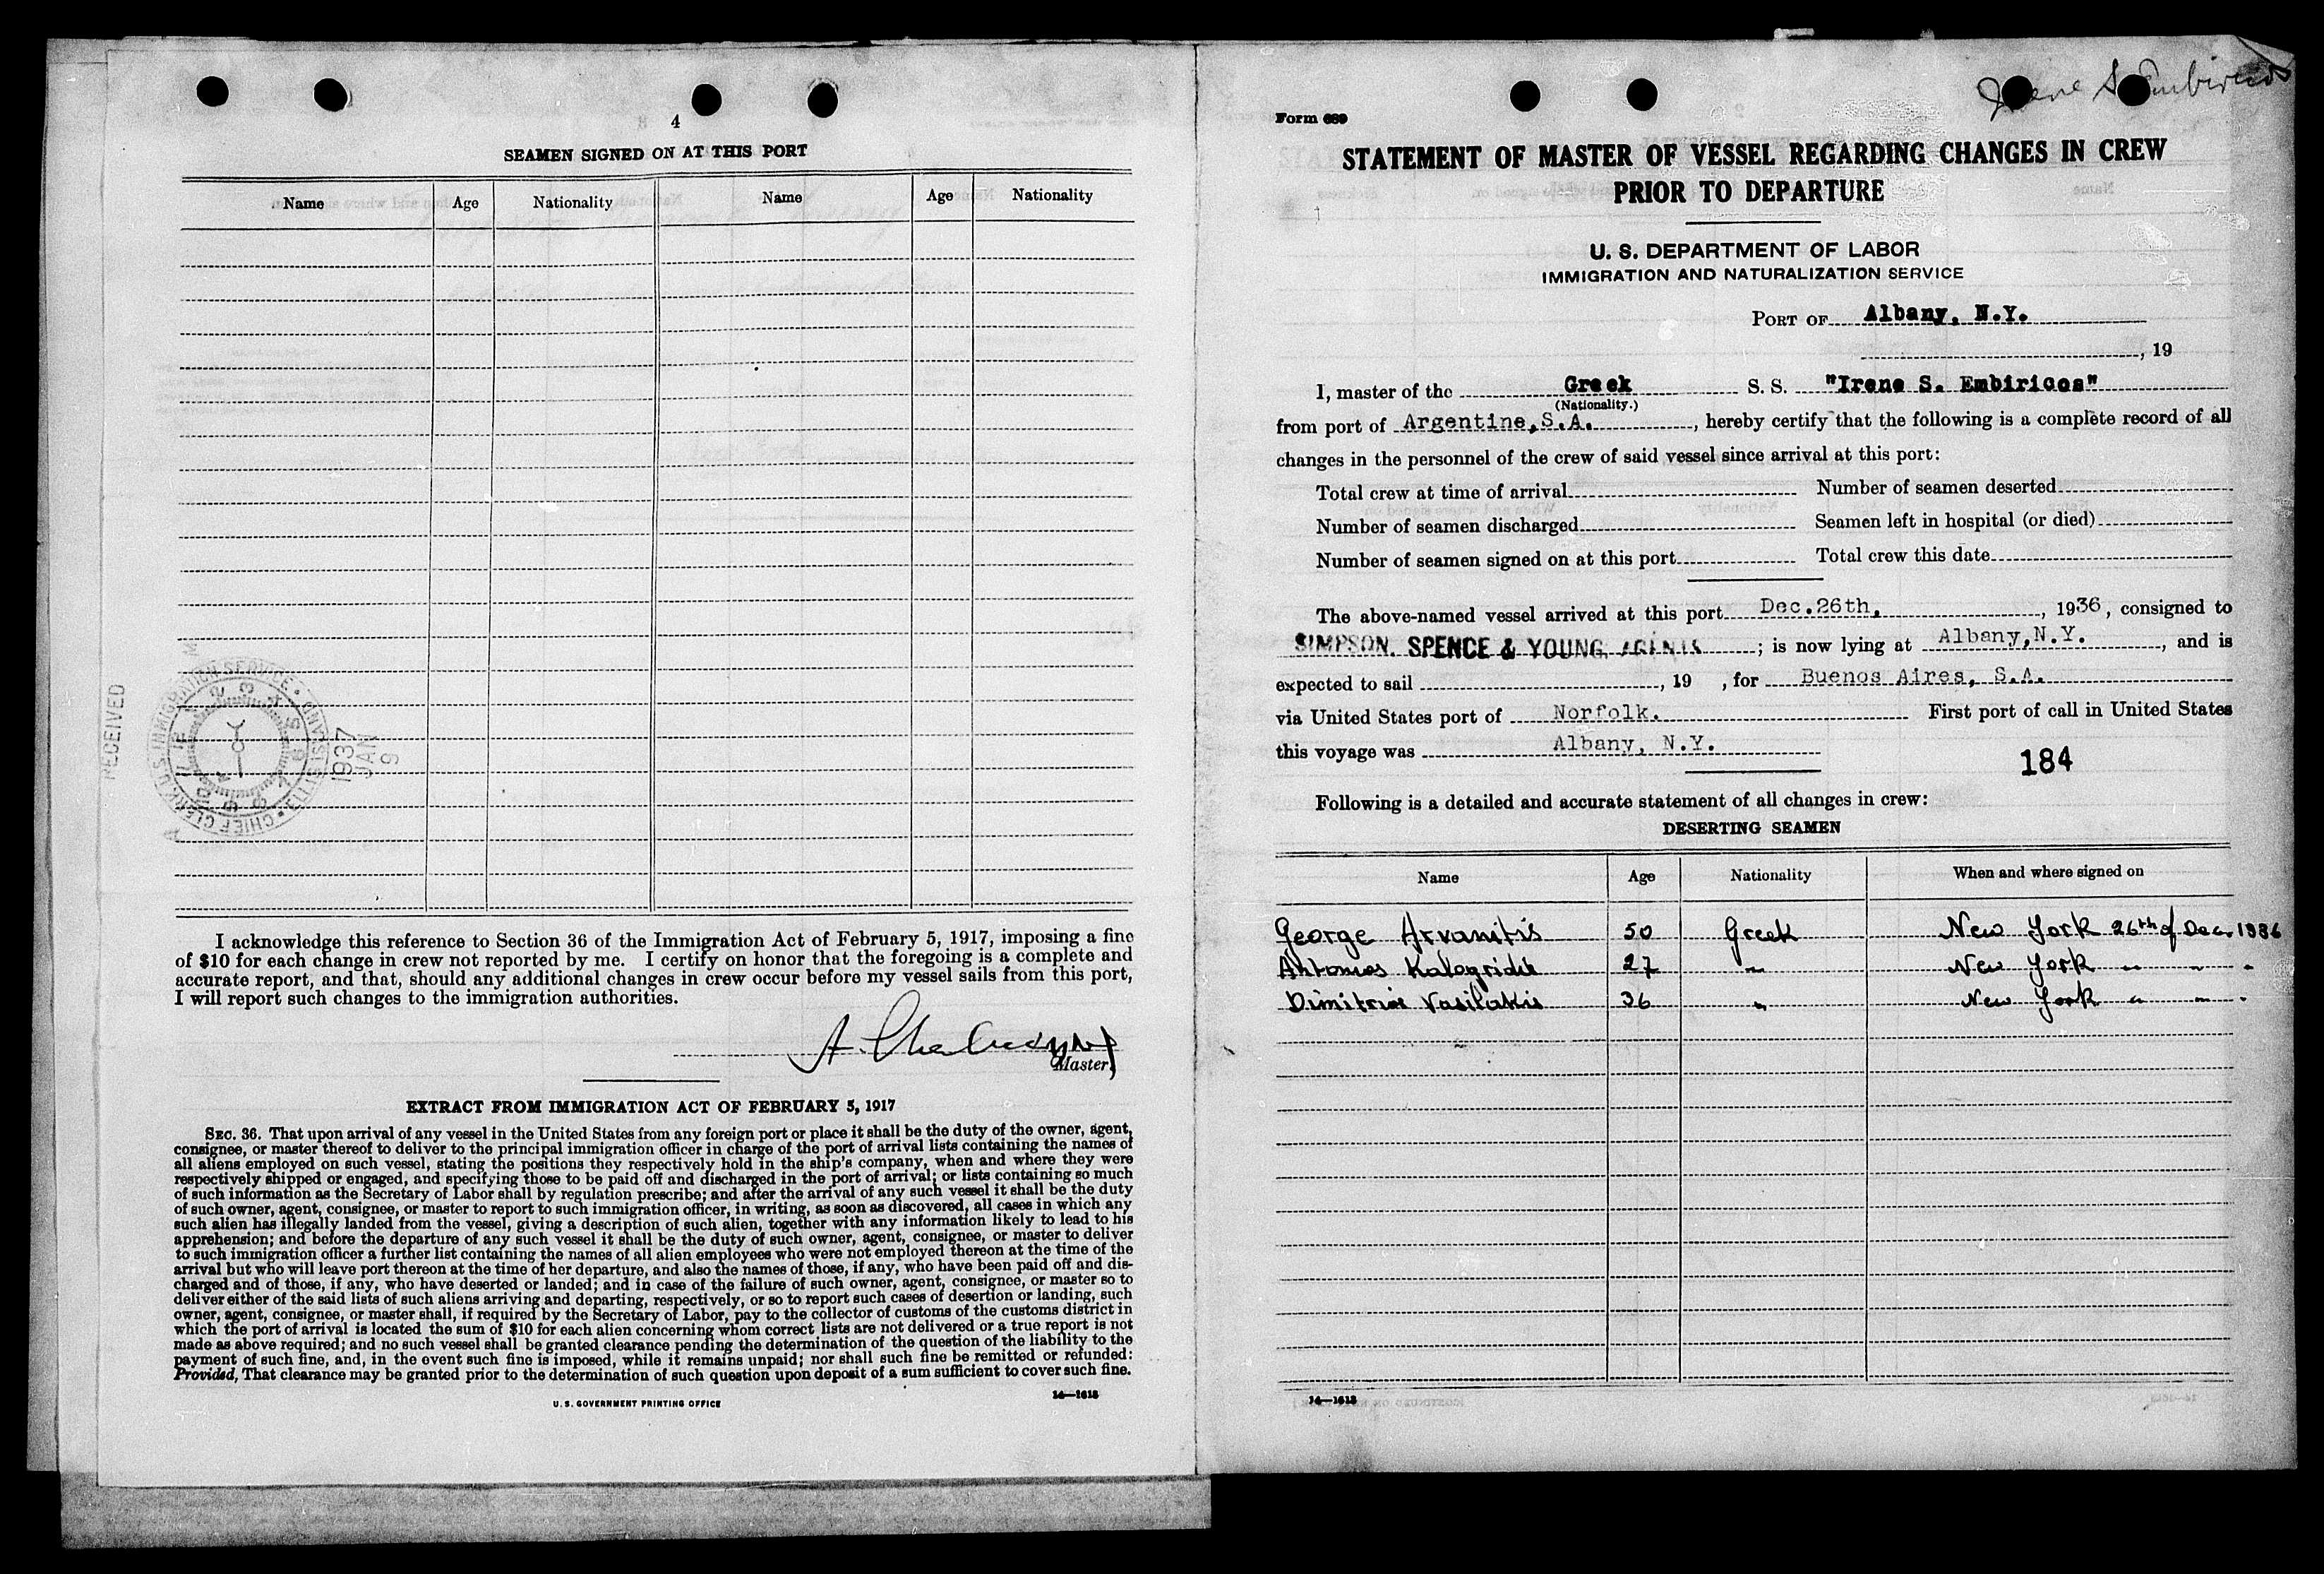 4
SEAMEN SIGNED ON AT THIS PORT
Name Age Nationality Name Age Nationality
RECEIVED
CHIEF CLERK U.S. IMMIGRATION SERVICE • ELLIS ISLAND •
1937
JAN
9
I acknowledge this reference to Section 36 of the Immigration Act of February 5, 1917, imposing a fine
of $10 for each change in crew not reported by me. I certify on honor that the foregoing is a complete and
accurate report, and that, should any additional changes in crew occur before my vessel sails from this port,
I will report such changes to the immigration authorities.
A.
Master
EXTRACT FROM IMMIGRATION ACT OF FEBRUARY 5, 1917
SEC. 36. That upon arrival of any vessel in the United States from any foreign port or place it shall be the duty of the owner, agent,
consignee, or master thereof to deliver to the principal immigration officer in charge of the port of arrival lists containing the names of
all aliens employed on such vessel, stating the positions they respectively hold in the ship's company, when and where they were
respectively shipped or engaged, and specifying those to be paid off and discharged in the port of arrival; or lists containing so much
of such information as the Secretary of Labor shall by regulation prescribe; and after the arrival of any such vessel it shall be the duty
of such owner, agent, consignee, or master to report to such immigration officer, in writing, as soon as discovered, all cases in which any
such alien has illegally landed from the vessel, giving a description of such alien, together with any information likely to lead to his
apprehension; and before the departure of any such vessel it shall be the duty of such owner, agent, consignee, or master to deliver
to such immigration officer a further list containing the names of all alien employees who were not employed thereon at the time of the
arrival but who will leave port thereon at the time of her departure, and also the names of those, if any, who have been paid off and dis-
charged and of those, if any, who have deserted or landed; and in case of the failure of such owner, agent, consignee, or master so to
deliver either of the said lists of such aliens arriving and departing, respectively, or so to report such cases of desertion or landing, such
owner, agent, consignee, or master shall, if required by the Secretary of Labor, pay to the collector of customs of the customs district in
which the port of arrival is located the sum of $10 for each alien concerning whom correct lists are not delivered or a true report is not
made as above required; and no such vessel shall be granted clearance pending the determination of the question of the liability to the
payment of such fine, and, in the event such fine is imposed, while it remains unpaid; nor shall such fine be remitted or refunded:
Provided, That clearance may be granted prior to the determination of such question upon deposit of a sum sufficient to cover such fine.
14—1613
U. S. GOVERNMENT PRINTING OFFICE
Irene S Embiricos
Form 689
STATEMENT OF MASTER OF VESSEL REGARDING CHANGES IN CREW
PRIOR TO DEPARTURE
U. S. DEPARTMENT OF LABOR
IMMIGRATION AND NATURALIZATION SERVICE
PORT OF Albany, N.Y.
, 19
I, master of the Greek S. S. "Irene S. Embiricos"
(Nationality.)
from port of Argentine,S.A. , hereby certify that the following is a complete record of all
changes in the personnel of the crew of said vessel since arrival at this port:
Total crew at time of arrival Number of seamen deserted
Number of seamen discharged Seamen left in hospital (or died)
Number of seamen signed on at this port Total crew this date
The above-named vessel arrived at this port Dec.26th, , 1936, consigned to
SIMPSON, SPENCE & YOUNG, AGENTS ; is now lying at Albany,N.Y. , and is
expected to sail , 19 , for Buenos Aires, S.A.
via United States port of Norfolk. First port of call in United States
this voyage was Albany, N.Y.
184
Following is a detailed and accurate statement of all changes in crew:
DESERTING SEAMEN
Name Age Nationality When and where signed on
George Arvanitis 50 Greek New York 26th of Dec. 1936
Antonios Kalogridis 27 " New York " " "
Dimitrios Vasilakis 36 " New York " " "
14—1613